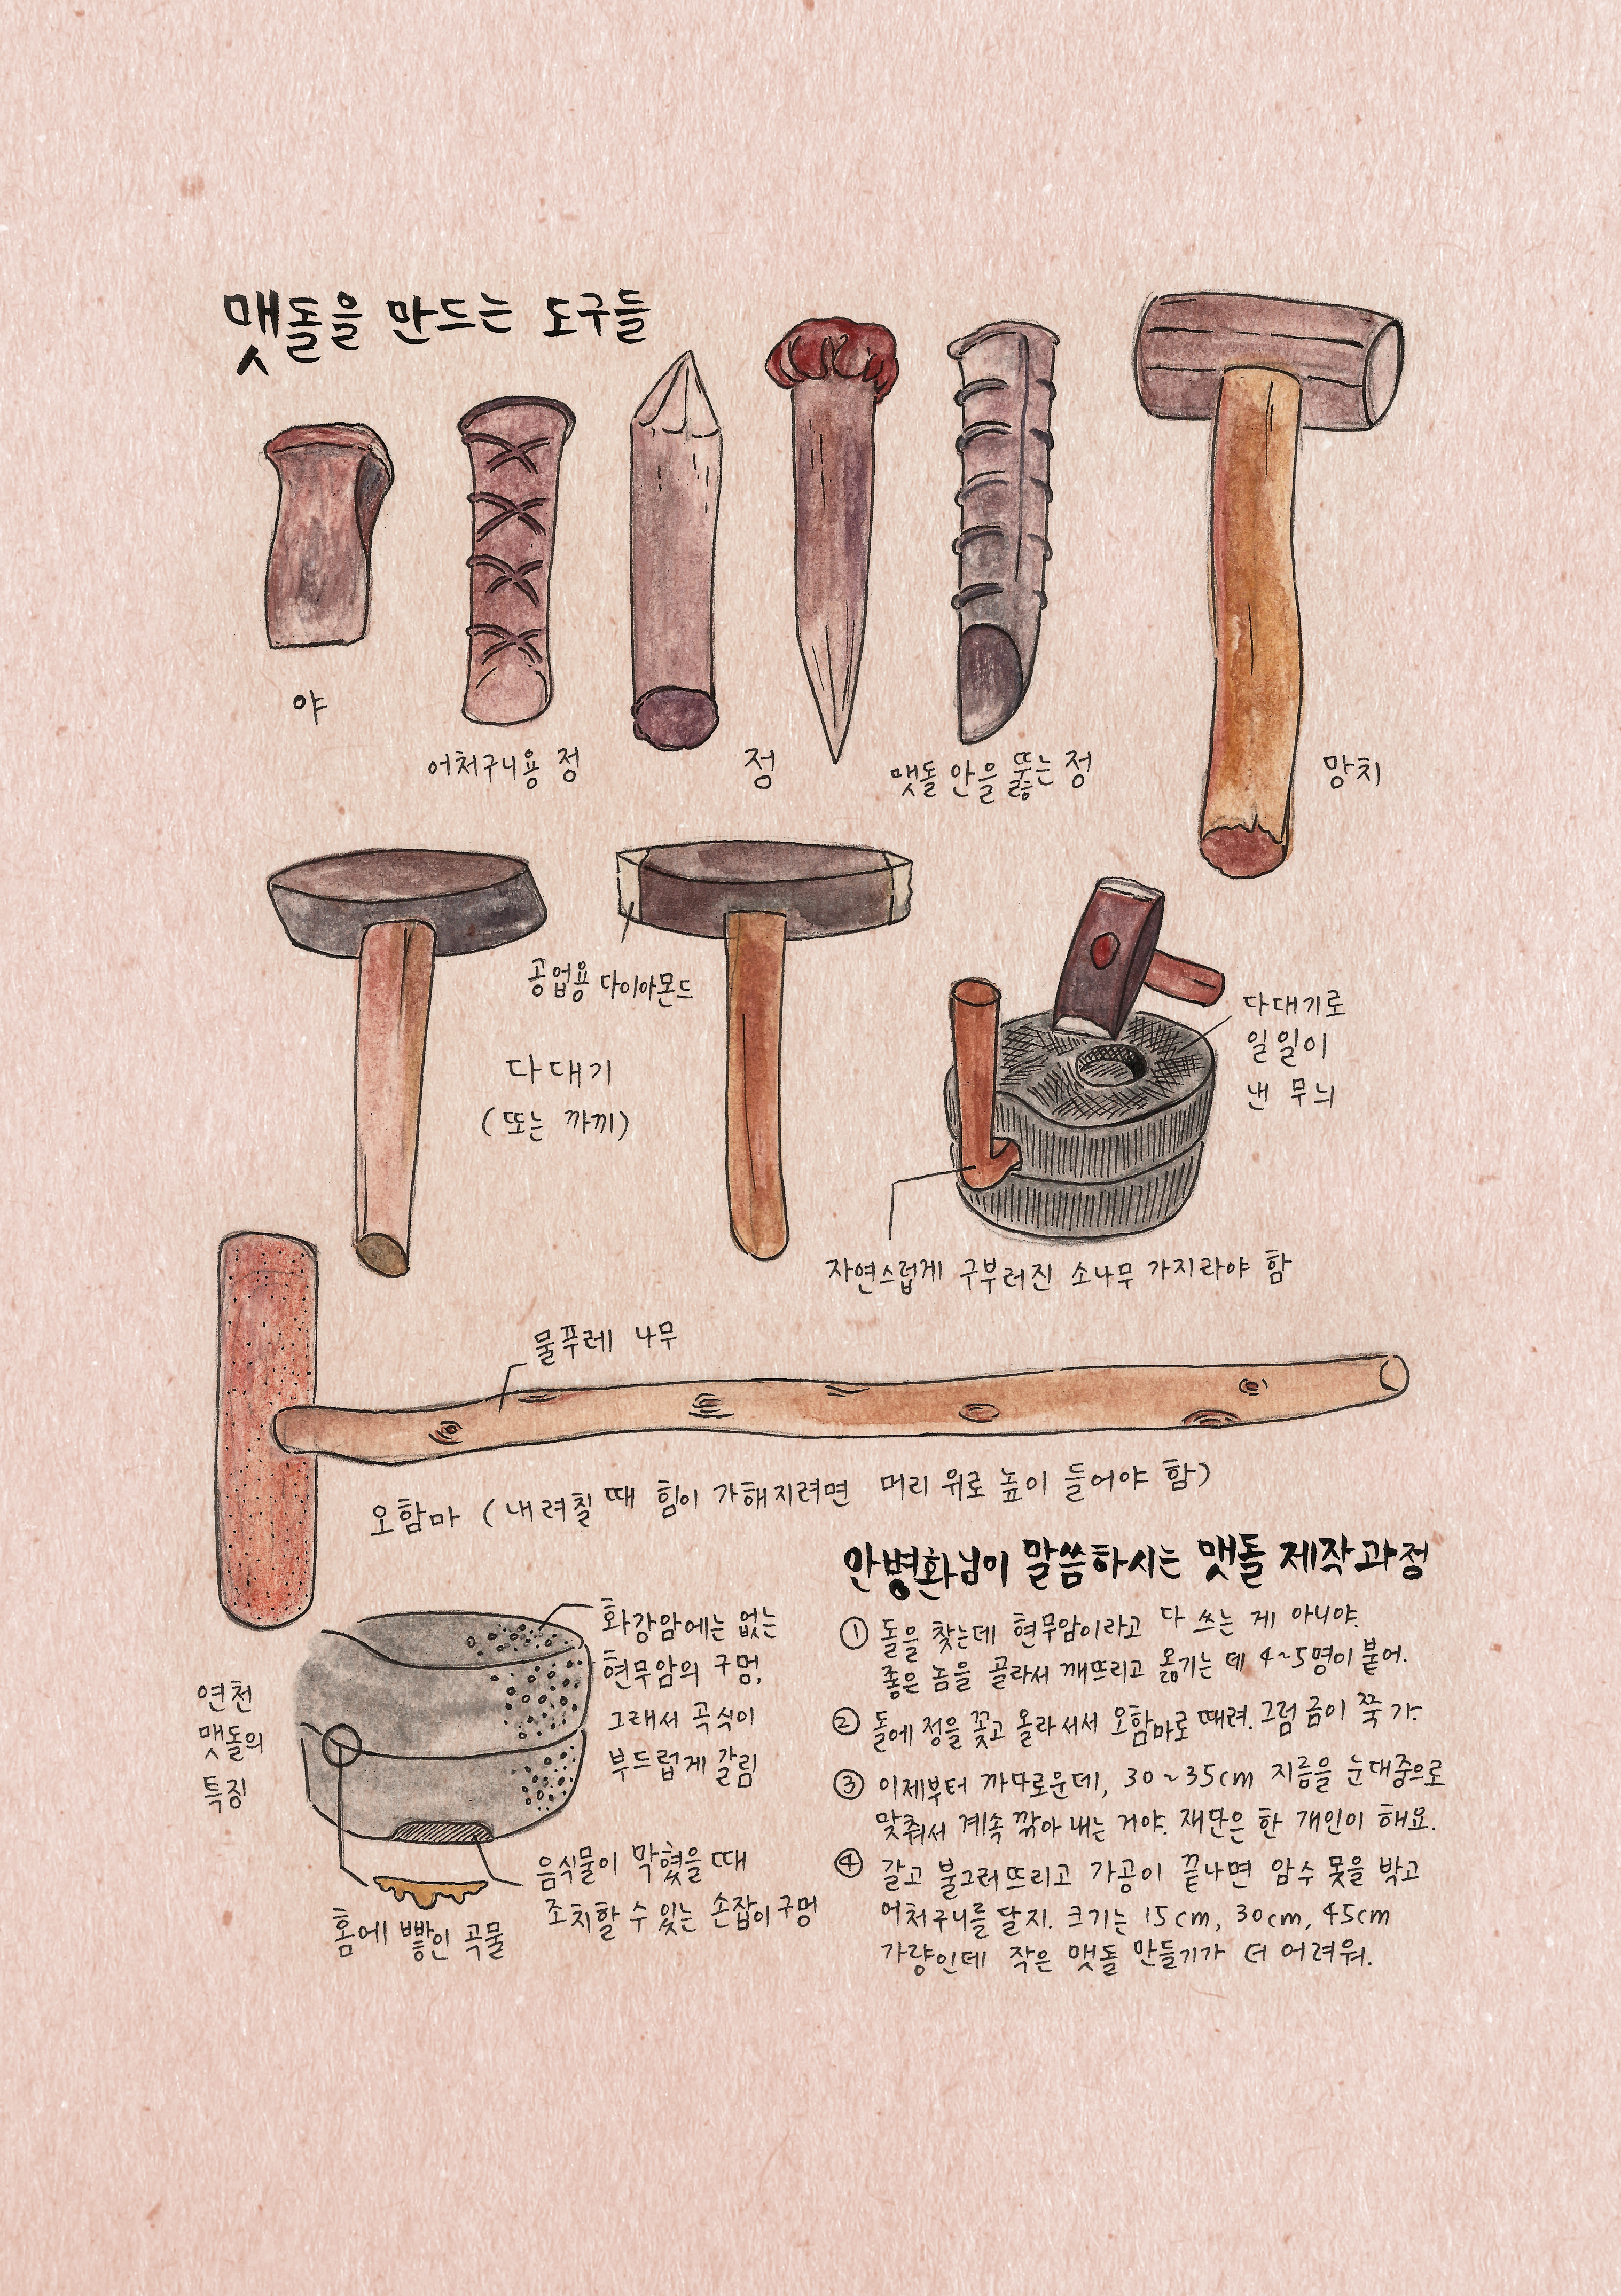 맷돌을 만드는 도구들
야
어처구니용 정
정
맷돌 안을 뚫는 정
망치
공업용 다이아몬드
다대기
(또는 까끼)
다대기로
일일이
낸 무늬
자연스럽게 구부러진 소나무 가지라야 함
물푸레 나무
오함마 (내려칠 때 힘이 가해지려면 머리 위로 높이 들어야 함)
연천
맷돌의
특징
화강암에는 없는
현무암의 구멍,
그래서 곡식이
부드럽게 갈림
음식물이 막혔을 때
조치할 수 있는 손잡이 구멍
홈에 빻인 곡물
안병화님이 말씀하시는 맷돌 제작과정
① 돌을 찾는데 현무암이라고 다 쓰는 게 아니야.
좋은 놈을 골라서 깨뜨리고 옮기는 데 4~5명이 붙어.
② 돌에 정을 꽂고 올라서서 오함마로 때려. 그럼 금이 쭉 가.
③ 이제부터 까다로운데, 30~35cm 지름을 눈대중으로
맞춰서 계속 깎아 내는 거야. 재단은 한 개인이 해요.
④ 갈고 불그러뜨리고 가공이 끝나면 암수 못을 박고
어처구니를 달지. 크기는 15cm, 30cm, 45cm
가량인데 작은 맷돌 만들기가 더 어려워.